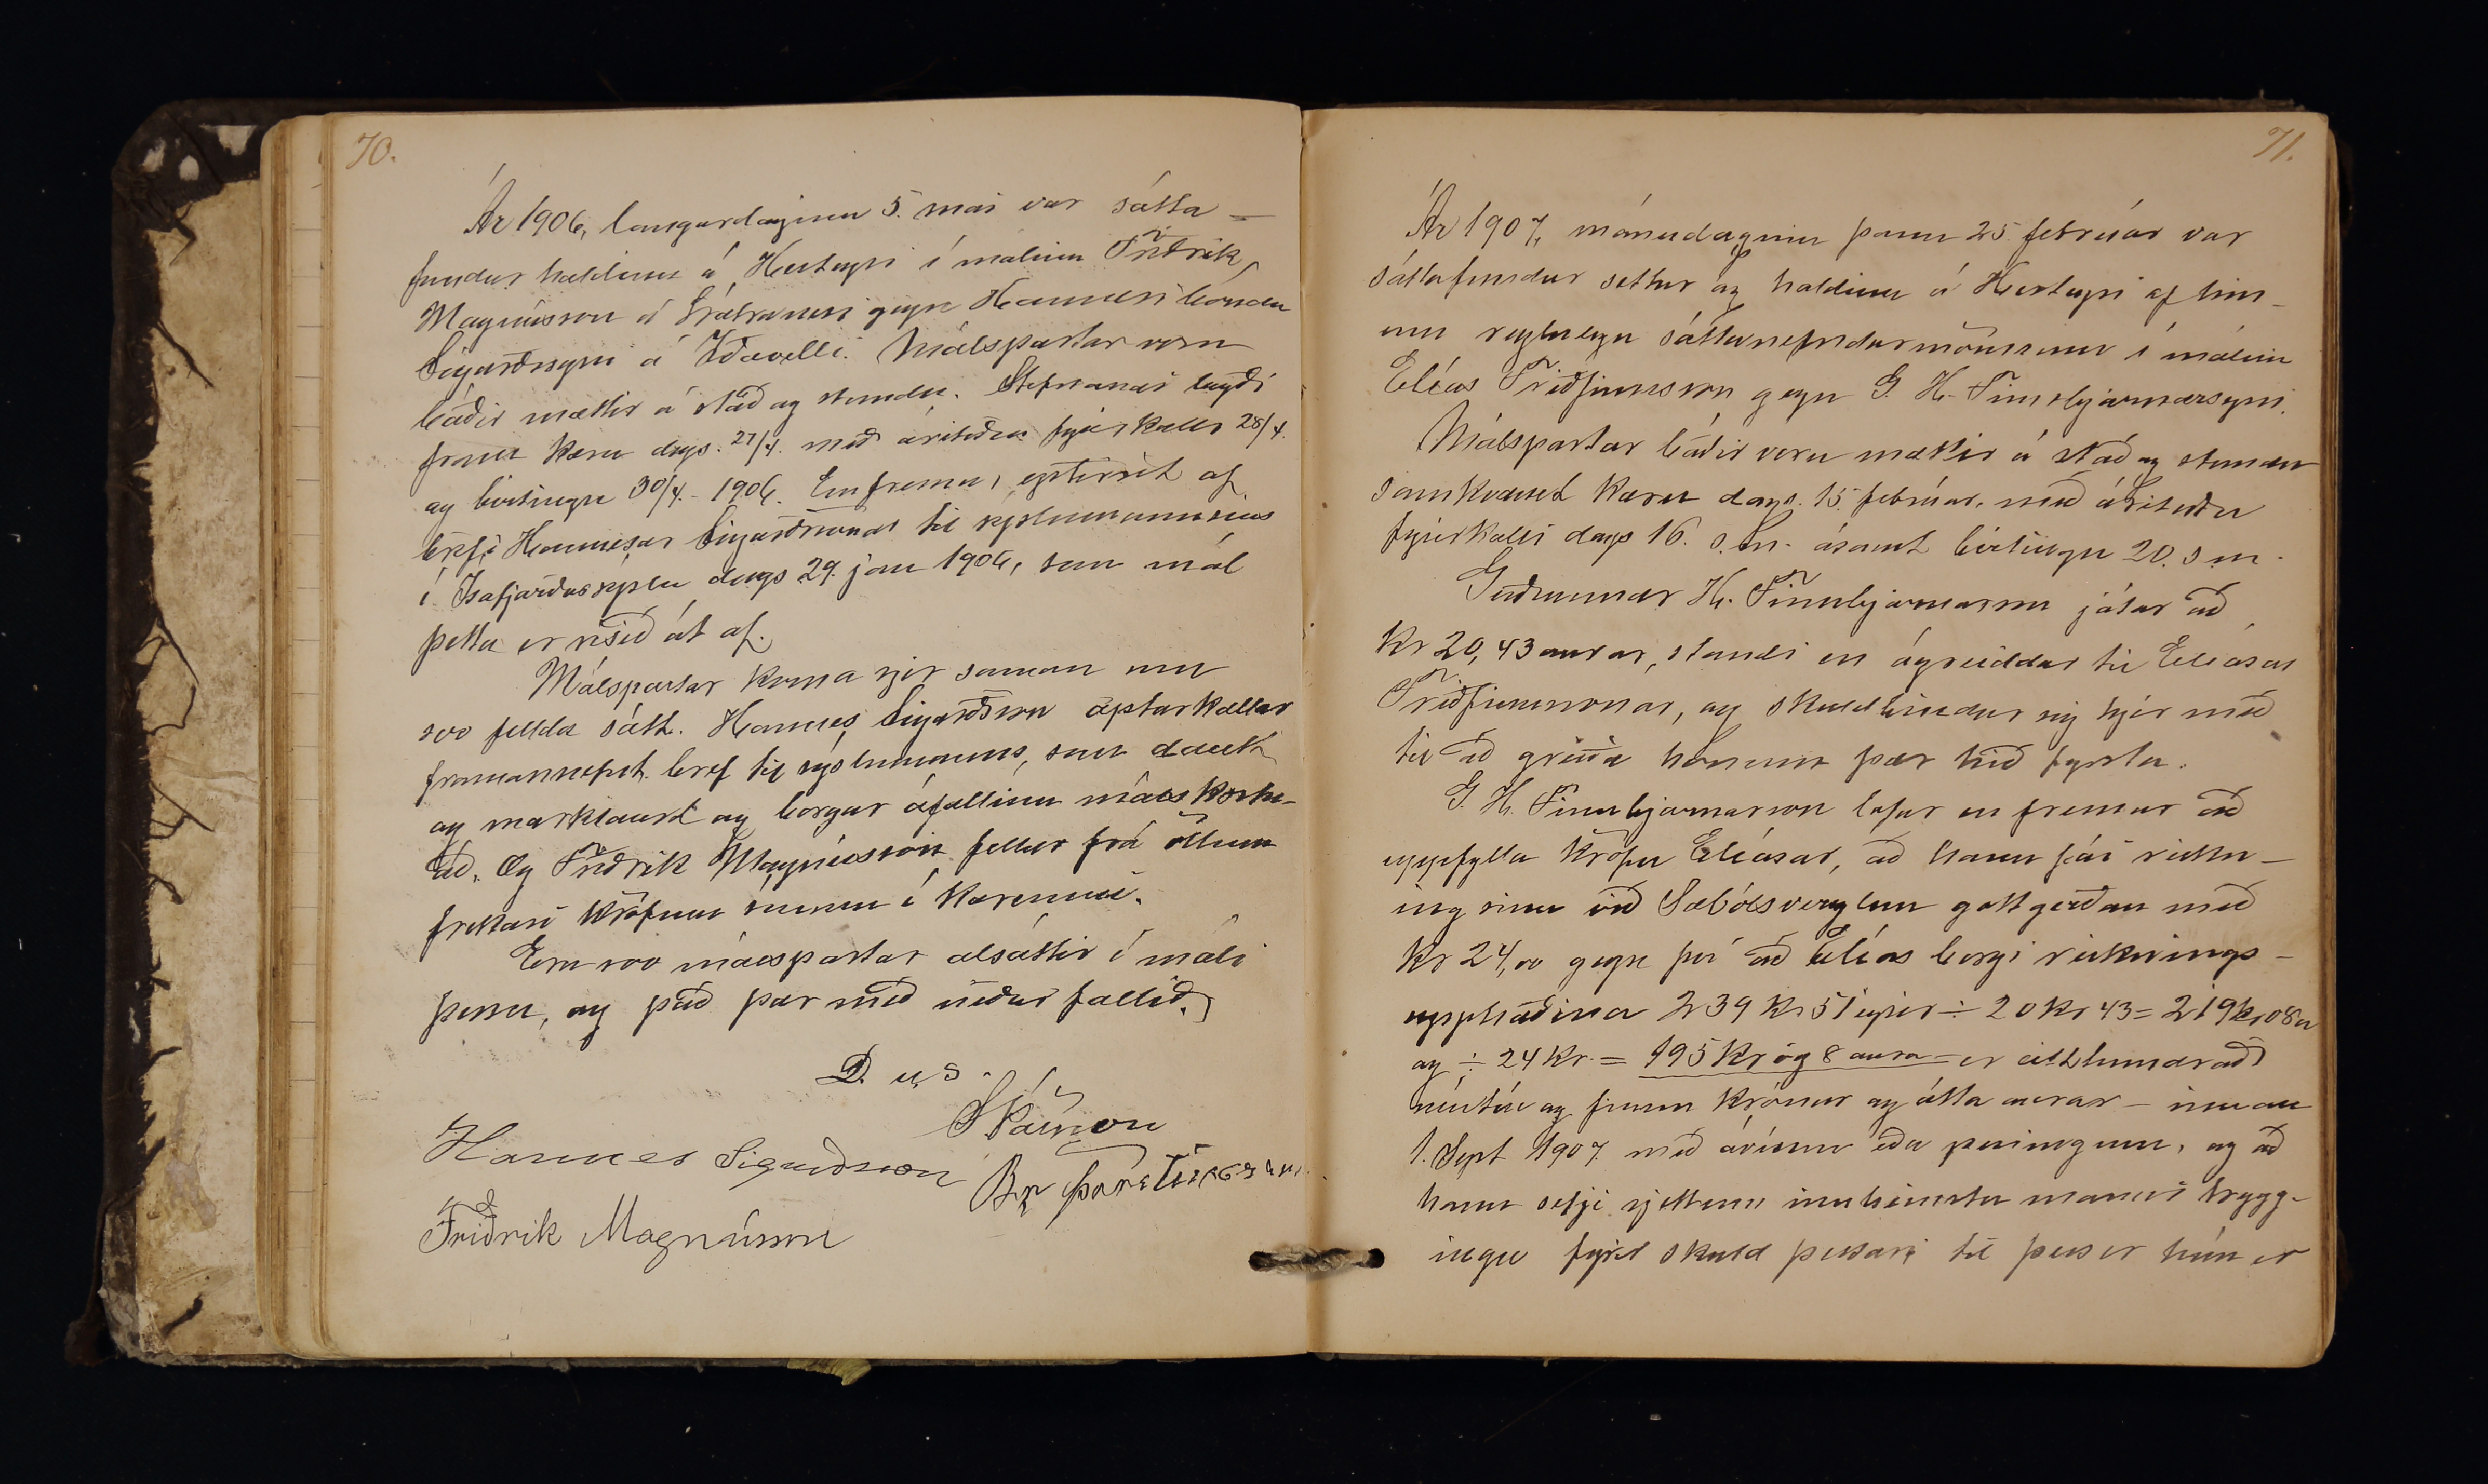 70.
Ár 1906, laugardaginn 5. maí var sátta-
fundur haldinn á Hesteyri í málinu Friðrik
Magnússon á Látranesi gegn Hannesi bónda
Sigurðssyni á Iðavelli. Málspartar voru
báðir mættir á stað og stundu. Stefnandi lagði
fram kæru dags. 27/4. með árituðu fyrirkalli 28/4.
og birtingu 30/4. 1906. Ennfremur eptirrit af
brefi Hannesar Sigurðssonar til sýslumannsins
í Ísafjarðarsýslu dags 29. jan 1906, sem mál
þetta er risið út af.
Málspartar koma sjer saman um
svo fellda sátt. Hannes Sigurðsson apturkallar
framannefnt bref til sýslumanns, sem dautt
og marklaust og borgar áfallinn máls kostn-
að. Og Friðrik Magnússon fellur frá öllum
frekari kröfum sínum í kærunni.
Eru svo málspartar alsáttir í máli
þessu, og það þar með niður fallið.
D. u. s.
SPálsson
Hannes Sigurðsson
Br Þorsteinsson
Friðrik Magnússon
71.
Ár 1907, mánudaginn þann 25 febrúar var
sáttafundur settur og haldinn á Hesteyri af hin-
um reglulegu sáttanefndarmönnum í málinu
Elías Friðfinnsson gegn G. H. Finnbjarnarsyni.
Málspartar báðir voru mættir á stað og stundu
samkvæmt kæru dags. 15. febrúar, með árituðu
fyrirkalli dags 16. s.m. ásamt birtingu 20. s.m.
Guðmundur H. Finnbjarnarson játar að
Kr 20,43 aurar, standi en ógreiddar til Elíasar
Friðfinnssonar, og skuldbindur sig hjer með
til að greiða honum þær hið fyrsta.
G. H. Finnbjarnarson lofar en fremur að
uppfylla kröfu Elíasar, að hann fái reikn-
ing sinn við Sæbólsverzlun gottgerðan með
Kr 24,00 gegn því að Elías borgi reiknings-
upphæðina 239 Kr 51 eyrir ÷ 20 kr 43 = 219 kr 08 a
og ÷ 24 Kr. = 195 Kr og 8 aura = er eitthundrað
níutíu og fimm krónur og átta aurar - innan
1. Sept 1907 með ávísun eða peningum, og að
hann setji rjettum innheimtu manni trygg-
ingu fyrir skuld þessari til þess er hún er